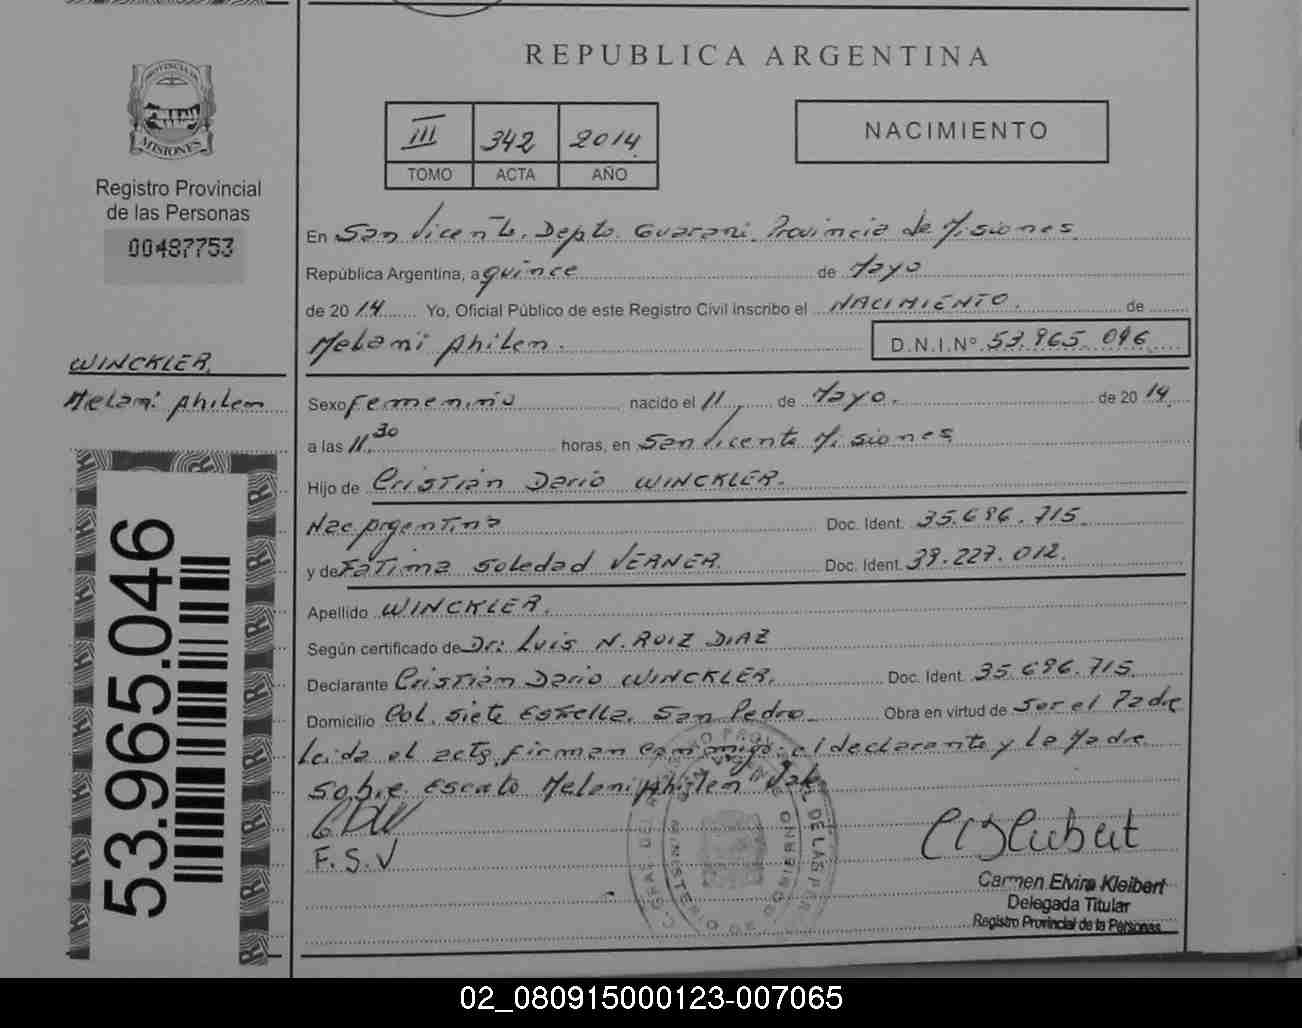 REPUBLICA ARGENTINA
PROVINCIA DE
MISIONES
Registro Provincial
de las Personas
00487753
III 342 2014
TOMO ACTA AÑO
NACIMIENTO
En San Vicente. Depto. Guarani. Provincia de Misiones.
República Argentina, a quince de Mayo
de 2014 Yo, Oficial Público de este Registro Civil inscribo el NACIMIENTO. de
Melani Ahilen. D.N.I.Nº 53.965.046
WINCKLER.
Melani Ahilen
Sexo Femenino nacido el 11 de Mayo. de 2014
a las 11,30 horas, en San Vicente Misiones
Hijo de Cristian Dario WINCKLER.
Nac. Argentina Doc. Ident. 35.696.715
y de Fatima Soledad VERNER. Doc. Ident. 39.227.012.
Apellido WINCKLER.
Según certificado de Dr: Luis N. RUIZ DIAZ
Declarante Cristian Dario WINCKLER. Doc. Ident. 35.696.715.
Domicilio Col. Siete Estrella. San Pedro Obra en virtud de Ser el Padre
Leida el acta, firman conmigo: el declarante y la Madre
Sobre Escrito Melani Ahilen Vale
F.S.V
53.965.046
Carmen Elvira Kleibert
Delegada Titular
Registro Provincial de la Personas
02_080915000123-007065